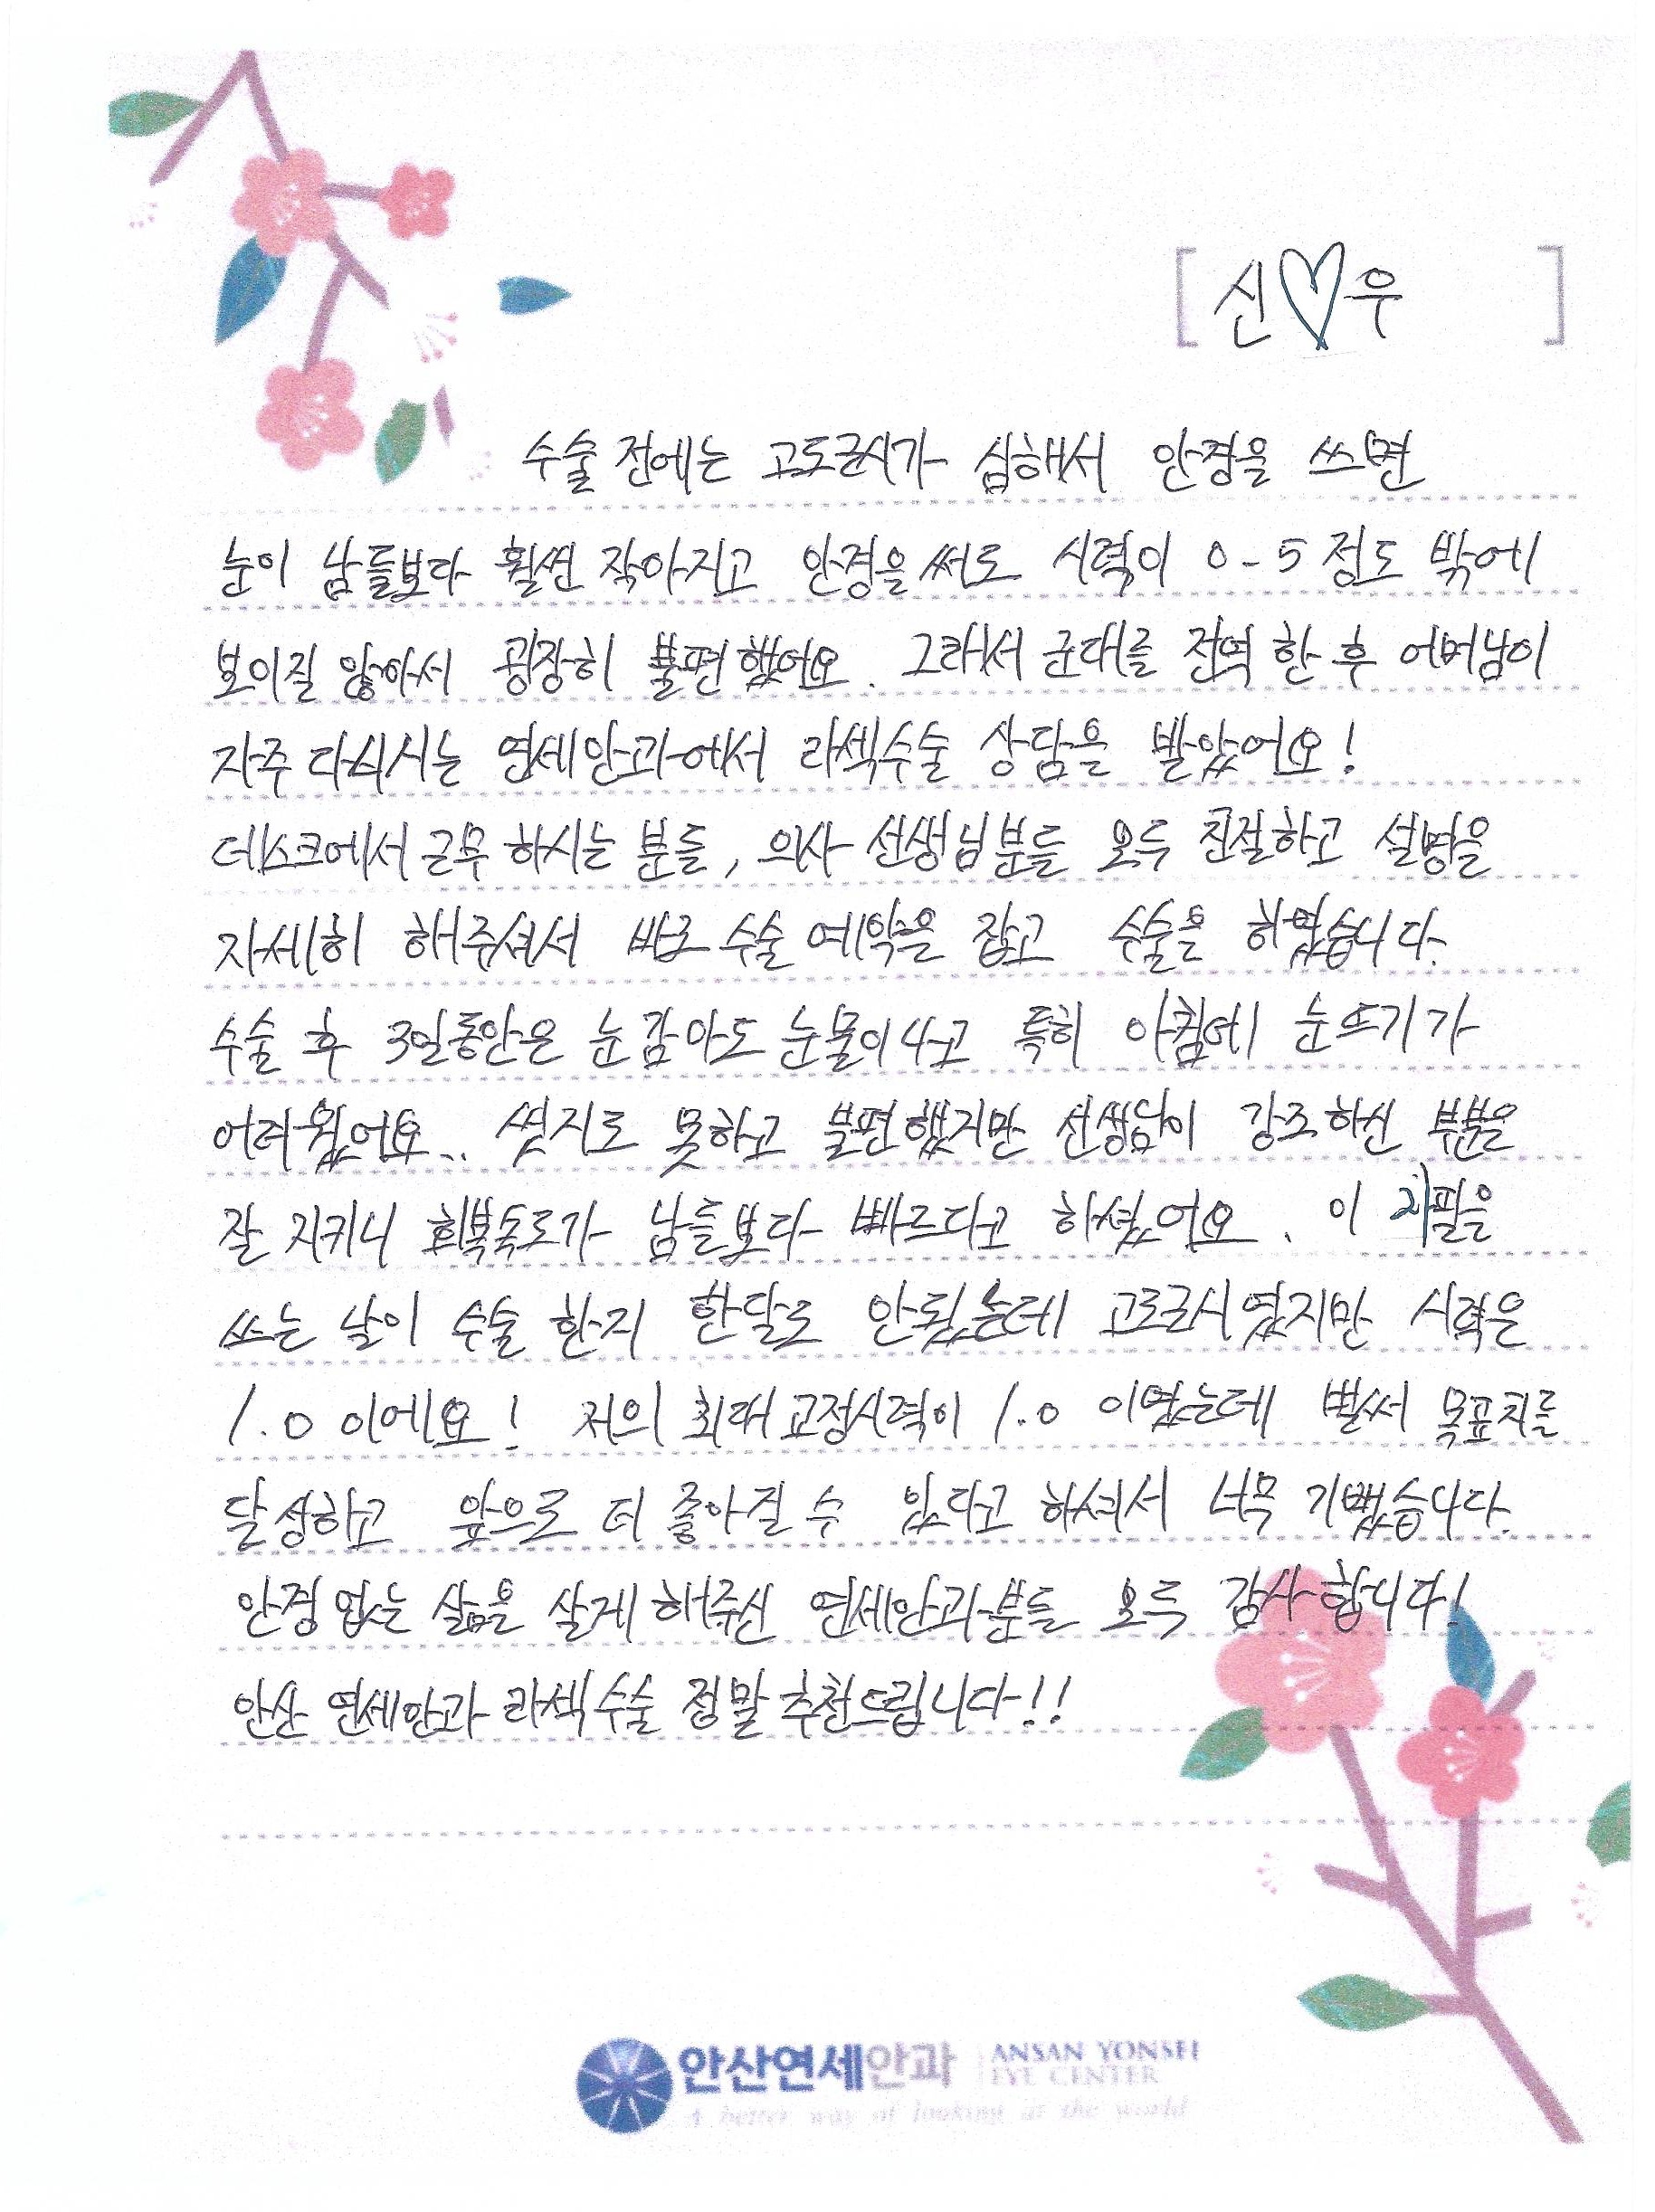 [신♡우]
수술 전에는 고도근시가 심해서 안경을 쓰면
눈이 남들보다 훨씬 작아지고 안경을 써도 시력이 0.5 정도 밖에
보이질 않아서 굉장히 불편했어요. 그래서 군대를 전역 한 후 어머님이
자주 다니시는 연세안과에서 라섹수술 상담을 받았어요!
데스크에서 근무 하시는 분들, 의사 선생님분들 모두 친절하고 설명을
자세히 해주셔서 바로 수술 예약을 잡고 수술을 하였습니다.
수술 후 3일동안은 눈감아도 눈물이 나고 특히 아침에 눈뜨기가
어려웠어요.. 씻지도 못하고 불편했지만 선생님이 강조하신 부분은
잘 지키니 회복속도가 남들보다 빠르다고 하셨어요. 이 자필을
쓰는 날이 수술 한지 한달도 안됬는데 고도근시였지만 시력은
1.0 이에요! 저의 최대교정시력이 1.0 이였는데 벌써 목표치를
달성하고 앞으로 더 좋아질 수 있다고 하셔서 너무 기뻤습니다.
안경 없는 삶을 살게 해주신 연세안과분들 모두 감사합니다!
안산 연세안과 라섹수술 정말 추천드립니다!!
안산연세안과 ANSAN YONSEI
EYE CENTER
A better way of looking at the world